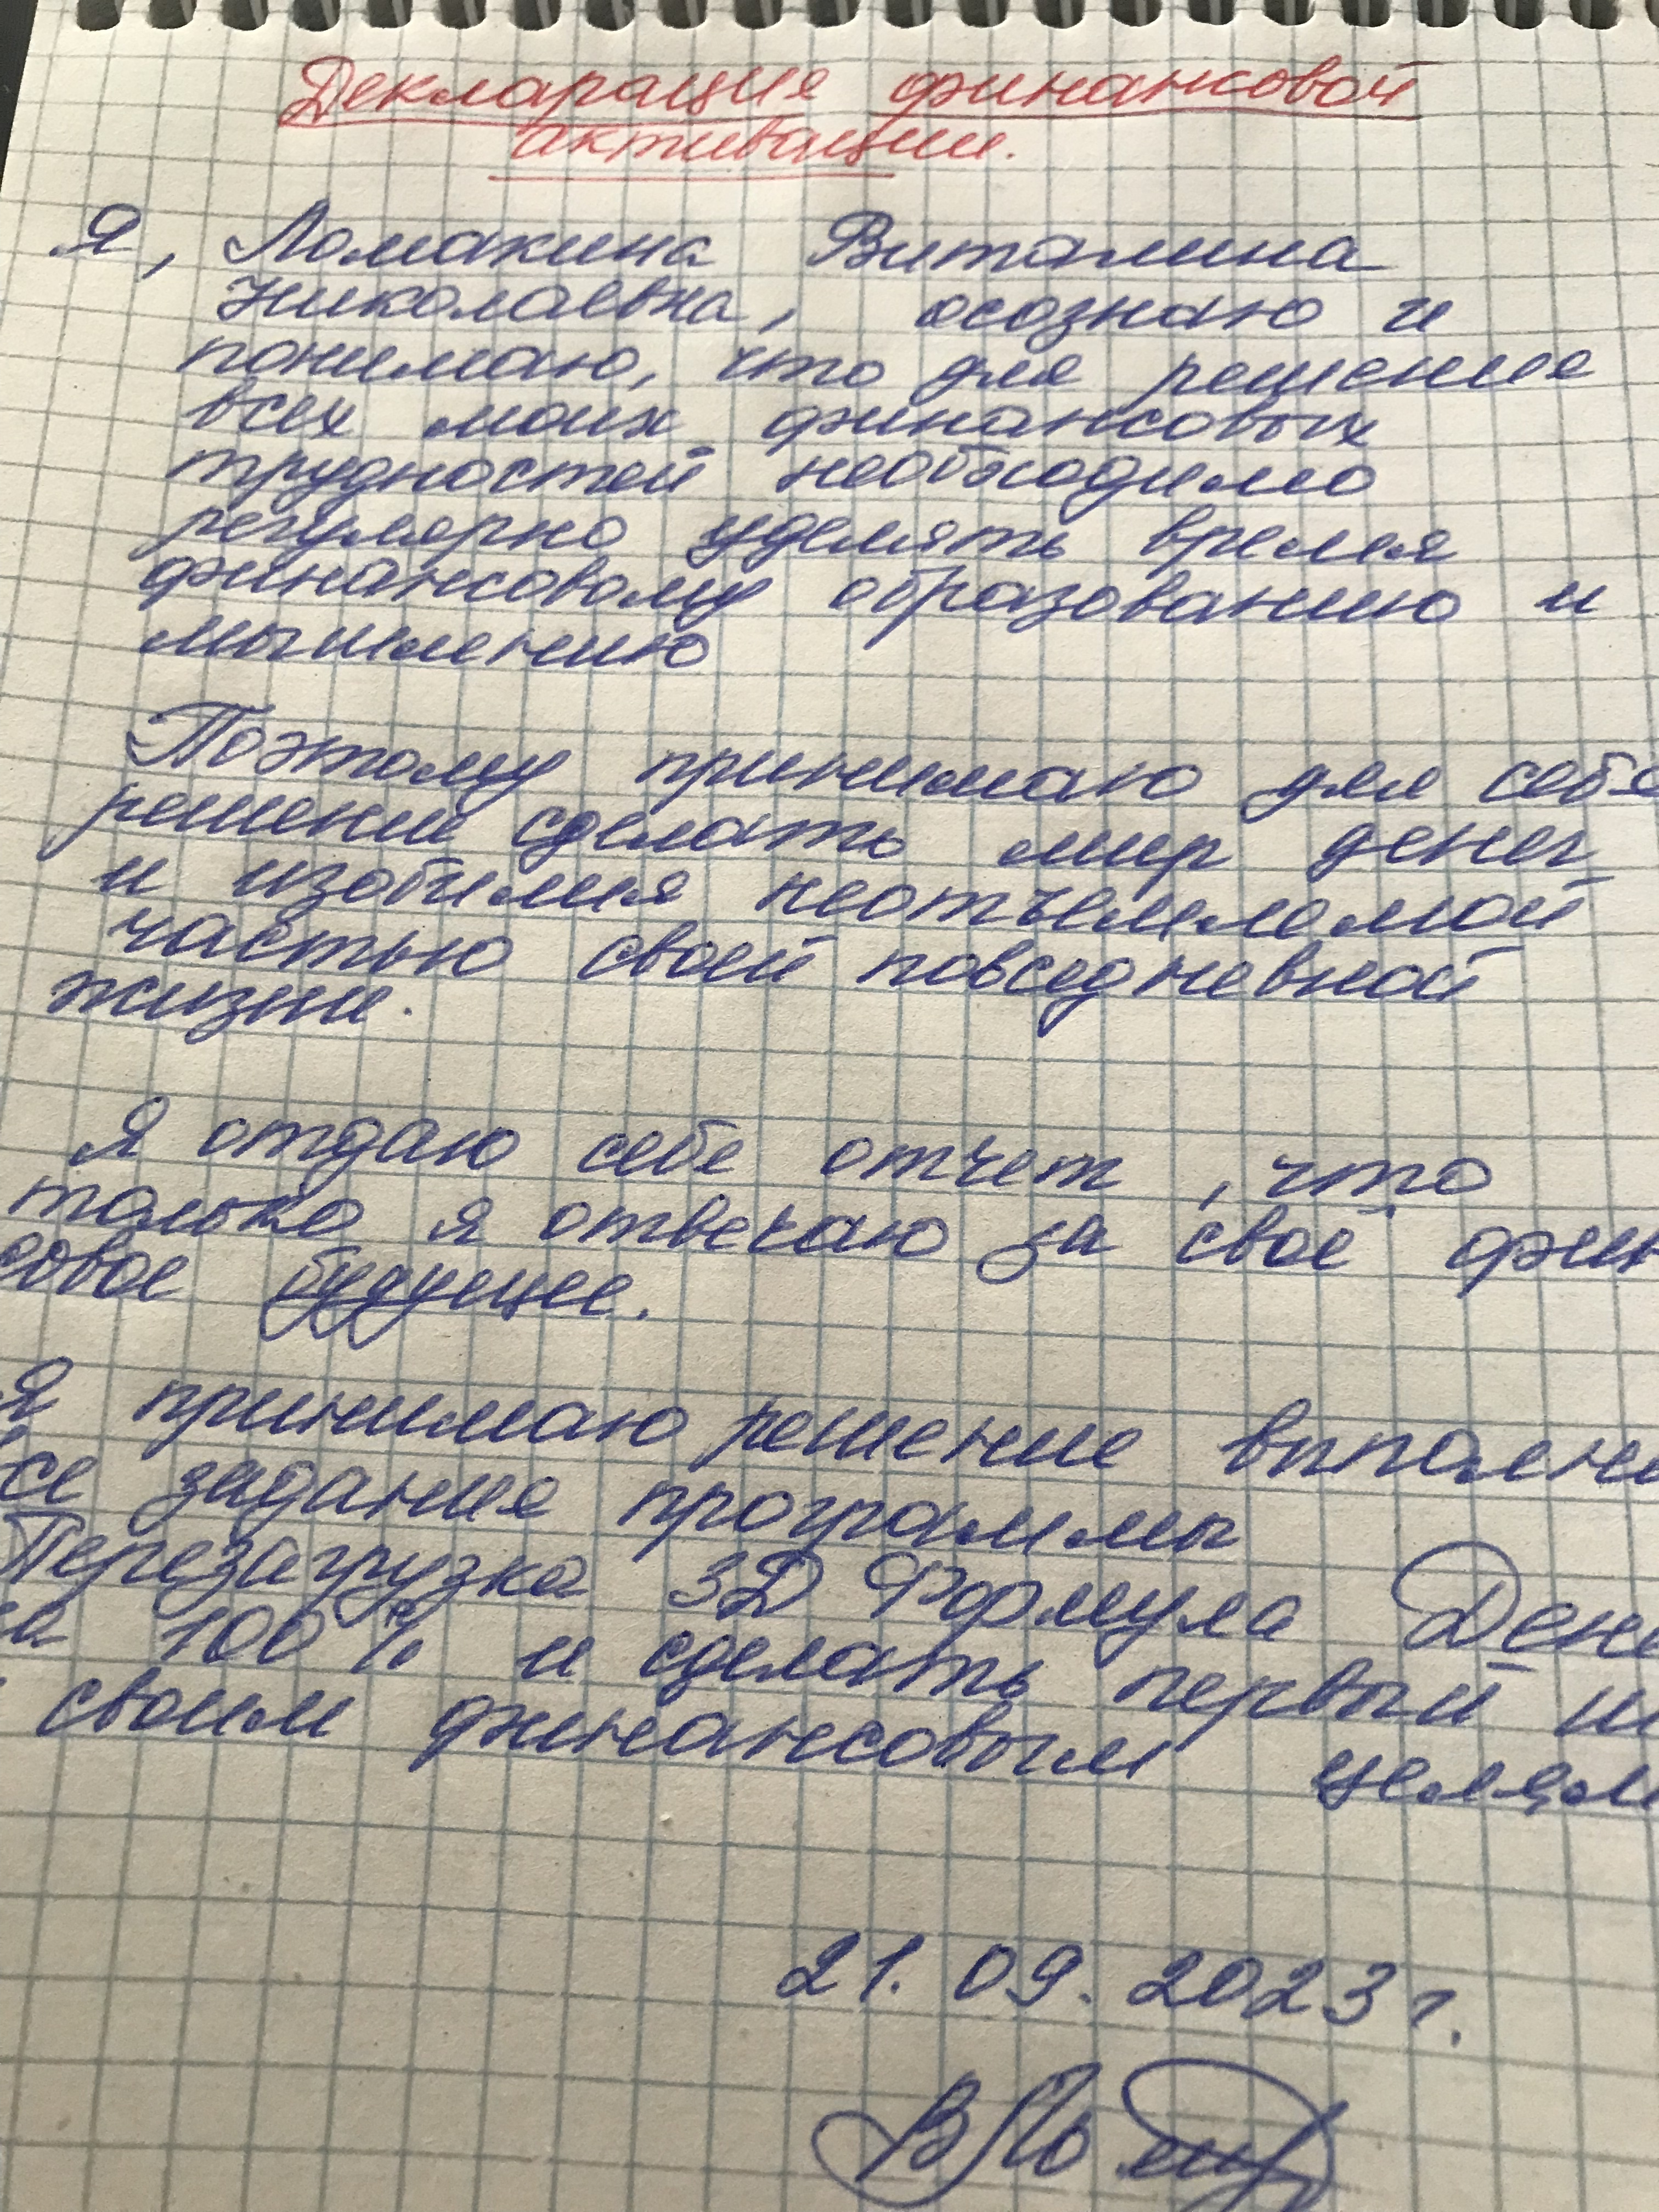 Декларация финансовой
активации.
Я, Ломакина Виталина
Николаевна, осознаю и
понимаю, что для решения
всех моих финансовых
трудностей необходимо
регулярно уделять время
финансовому образованию и
мышлению
Поэтому принимаю для себя
решение сделать мир денег
и изобилия неотъемлемой
частью своей повседневной
жизни.
Я отдаю себе отчет, что
только я отвечаю за своё фин
совое будущее.
Я принимаю решение выполни
все задания программы
Перезагрузка 3Д Формула Дене
на 100% и сделать первый ш
своим финансовым целям
21.09.2023 г.